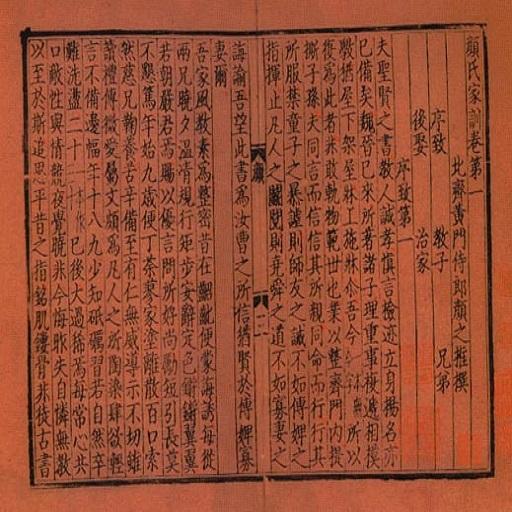 顏氏家訓卷第一
北齊黃門侍郎顏之推撰
序致 教子 兄弟
後娶 治家
序致第一
夫聖賢之書教人誠孝慎言檢迹立身揚名亦
已備矣魏晉已來所著諸子理重事複遞相模
斆猶屋下架屋牀上施牀尒吾今 所以
復為此者非敢軌物範世也業以整齊門內提
撕子孫夫同言而信信其所親同命而行行其
所服禁童子之暴謔則師友之誡不如傅婢之
指揮止凡人之鬬鬩則堯舜之道不如寡妻之
誨諭吾望此書為汝曹之所信猶賢於傅婢寡
妻爾
吾家風教素為整密昔在齠齔便蒙誨誘每從
兩兄曉夕溫凊規行矩步安辭定色鏘鏘翼翼
若朝嚴君焉賜以優言問所好尚勵短引長莫
不懇篤年始九歲便丁荼蓼家塗離散百口索
然慈兄鞠養苦辛備至有仁無威導示不切雖
讀禮傳微愛屬文頗為凡人之所陶染肆欲輕
言不備邊幅年十八九少知砥礪習若自然卒
難洗盪二十 已後大過稀焉每常心共
口敵性與情競夜覺曉非今悔昨失自憐無教
以至於斯追思平昔之指銘肌鏤骨非徒古書